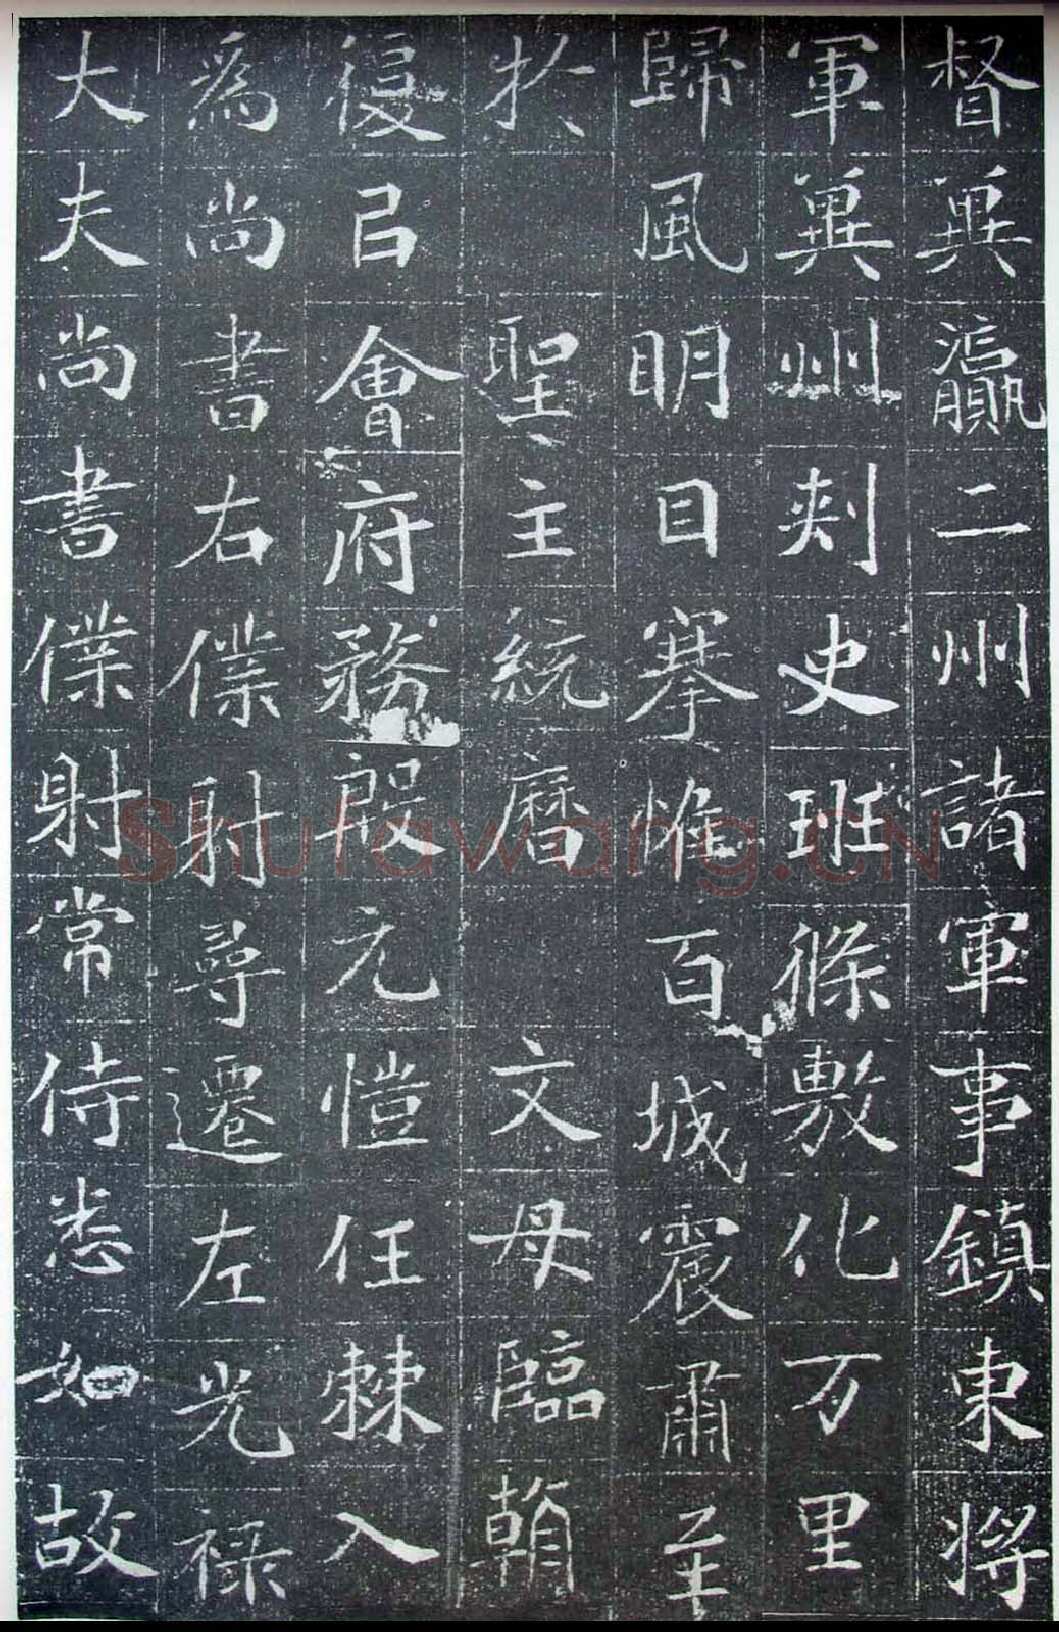 督兾瀛二州諸軍事鎮東將
軍兾州刺史班條敷化万里
歸風明目搴帷百城震肅至
於聖主統曆文母臨朝
復㠯會府務殷元愷任棘入
爲尚書右僕射尋遷左光祿
大夫尚書僕射常侍悉如故
Shufawang.CN